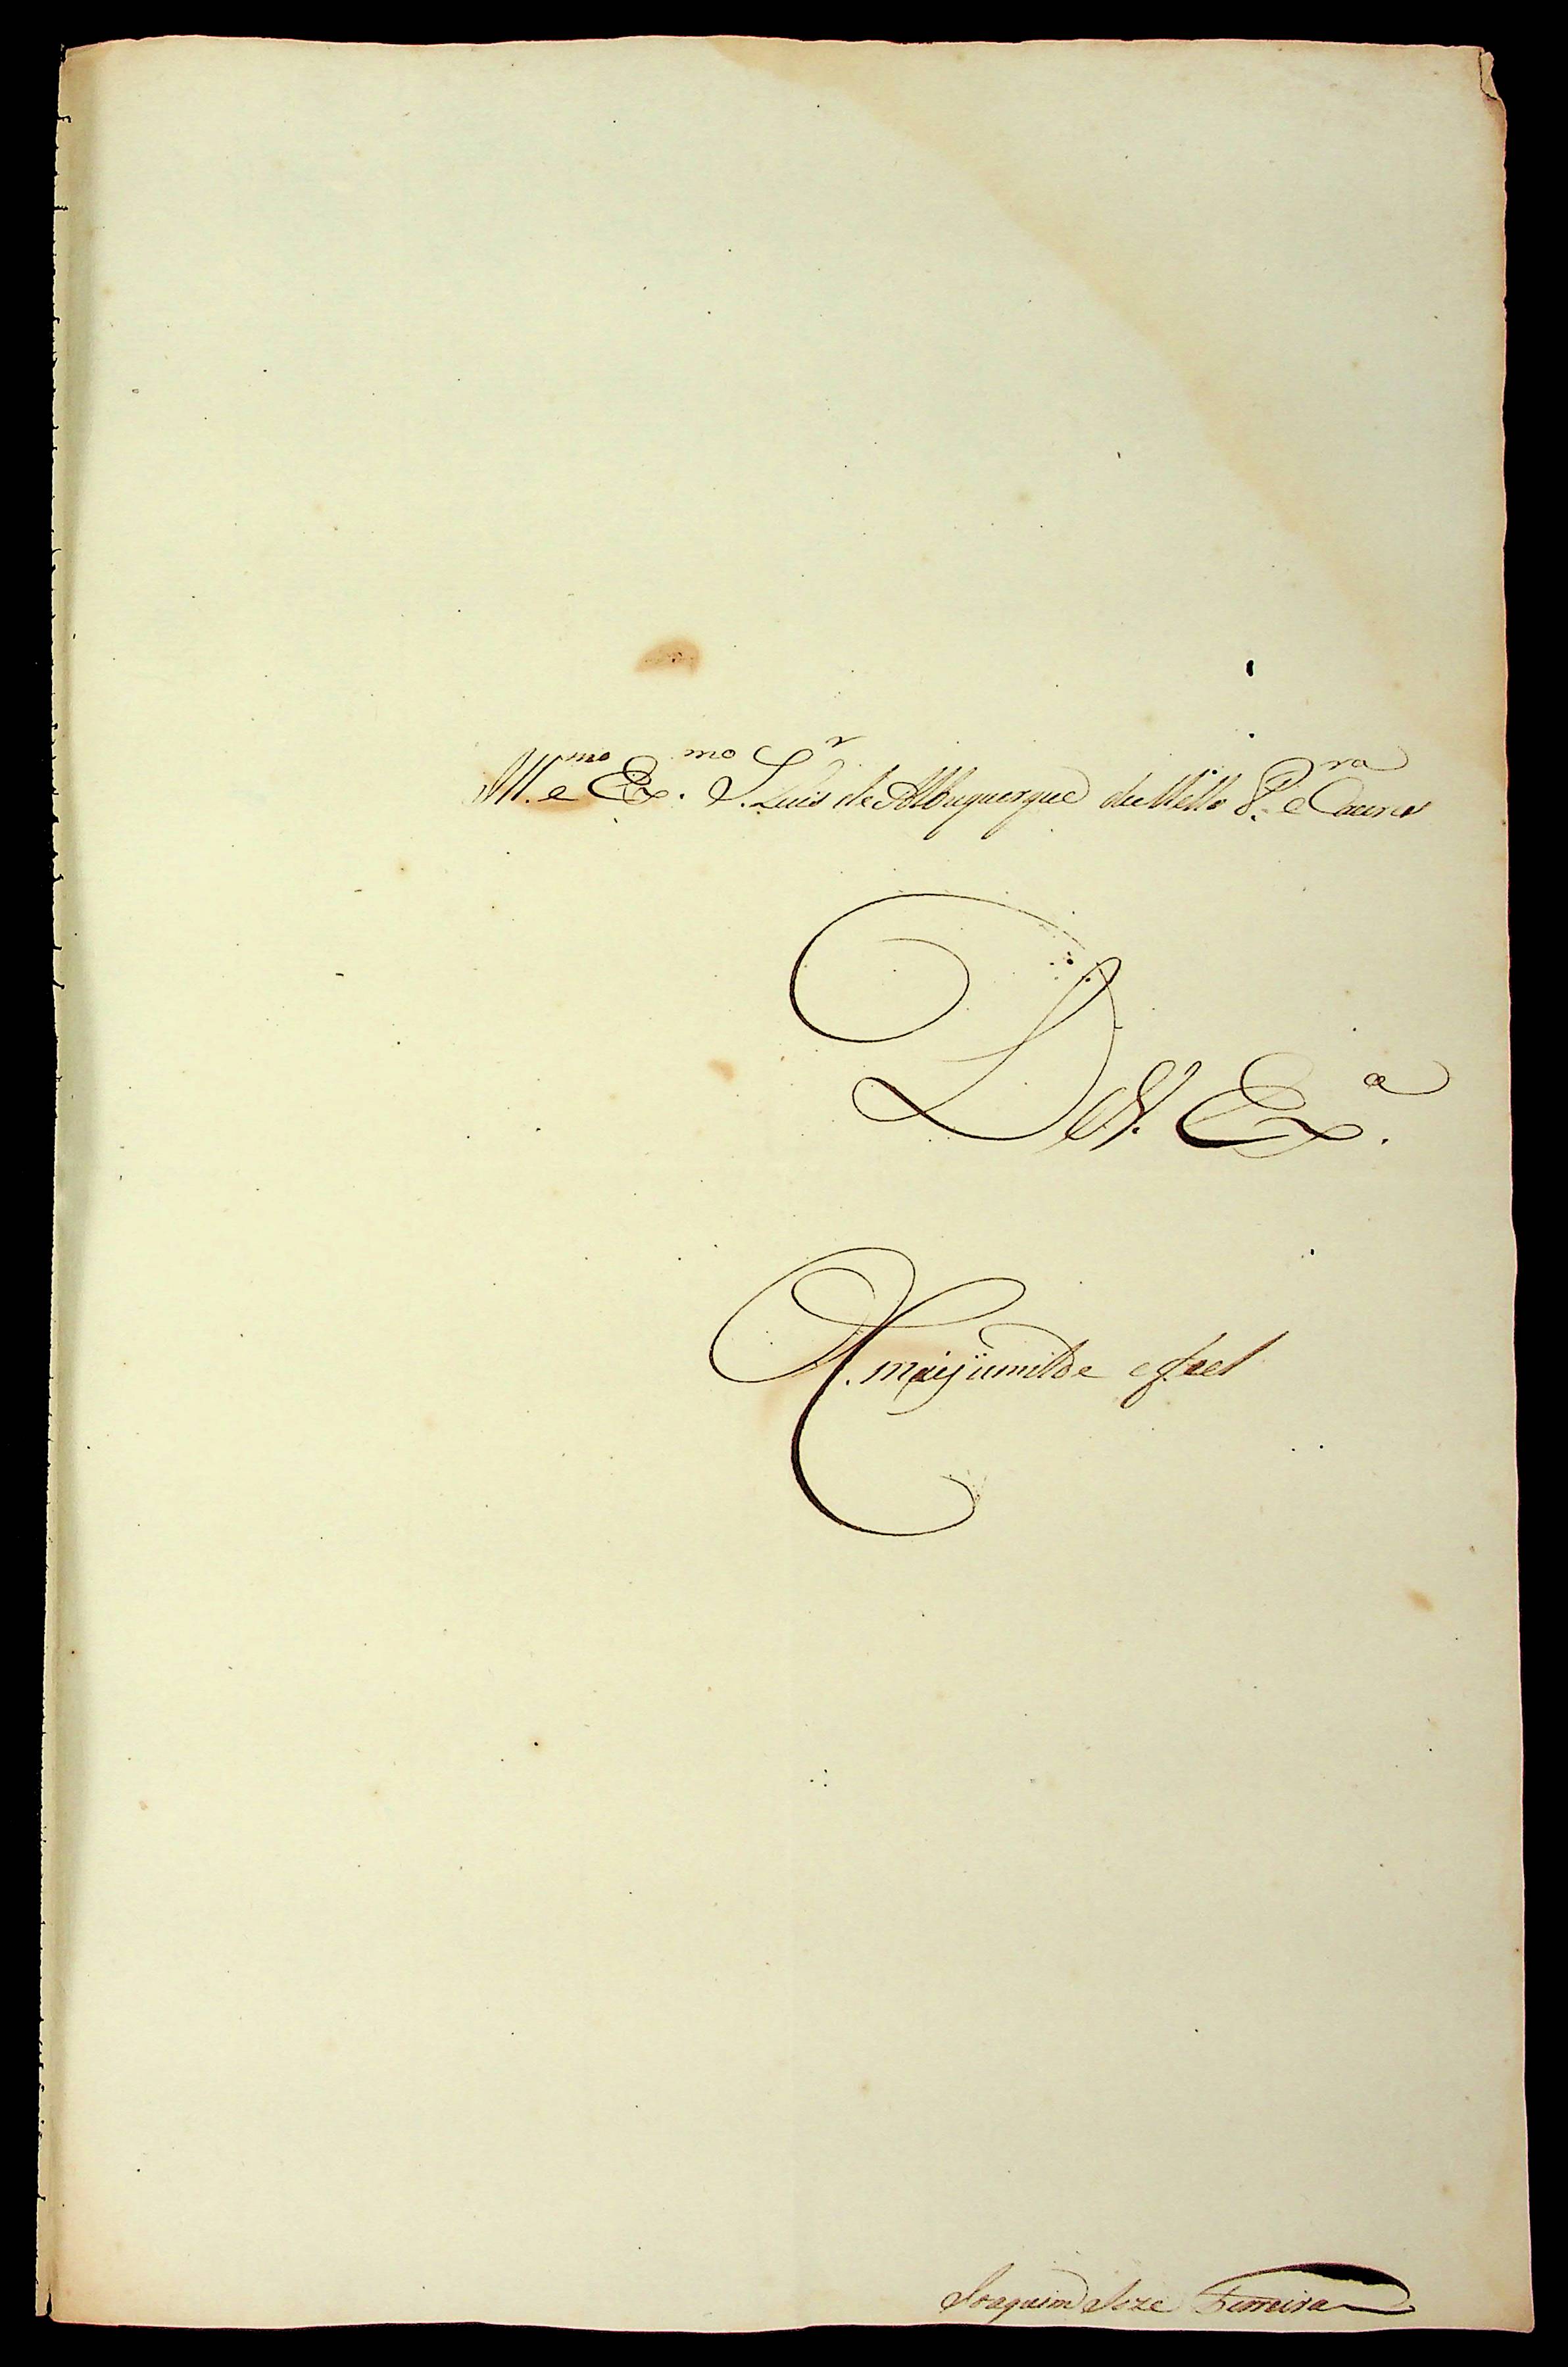 Ill.mo e Ex.mo S.r Luis de Albuquerque de Mello P.ra e Caceres
De V. Ex.a
O mais umilde e fiel
Joaquim Joze Ferreira